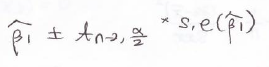 β̂₁ ± tₙ₋₂, α/2 * s.e(β̂₁)